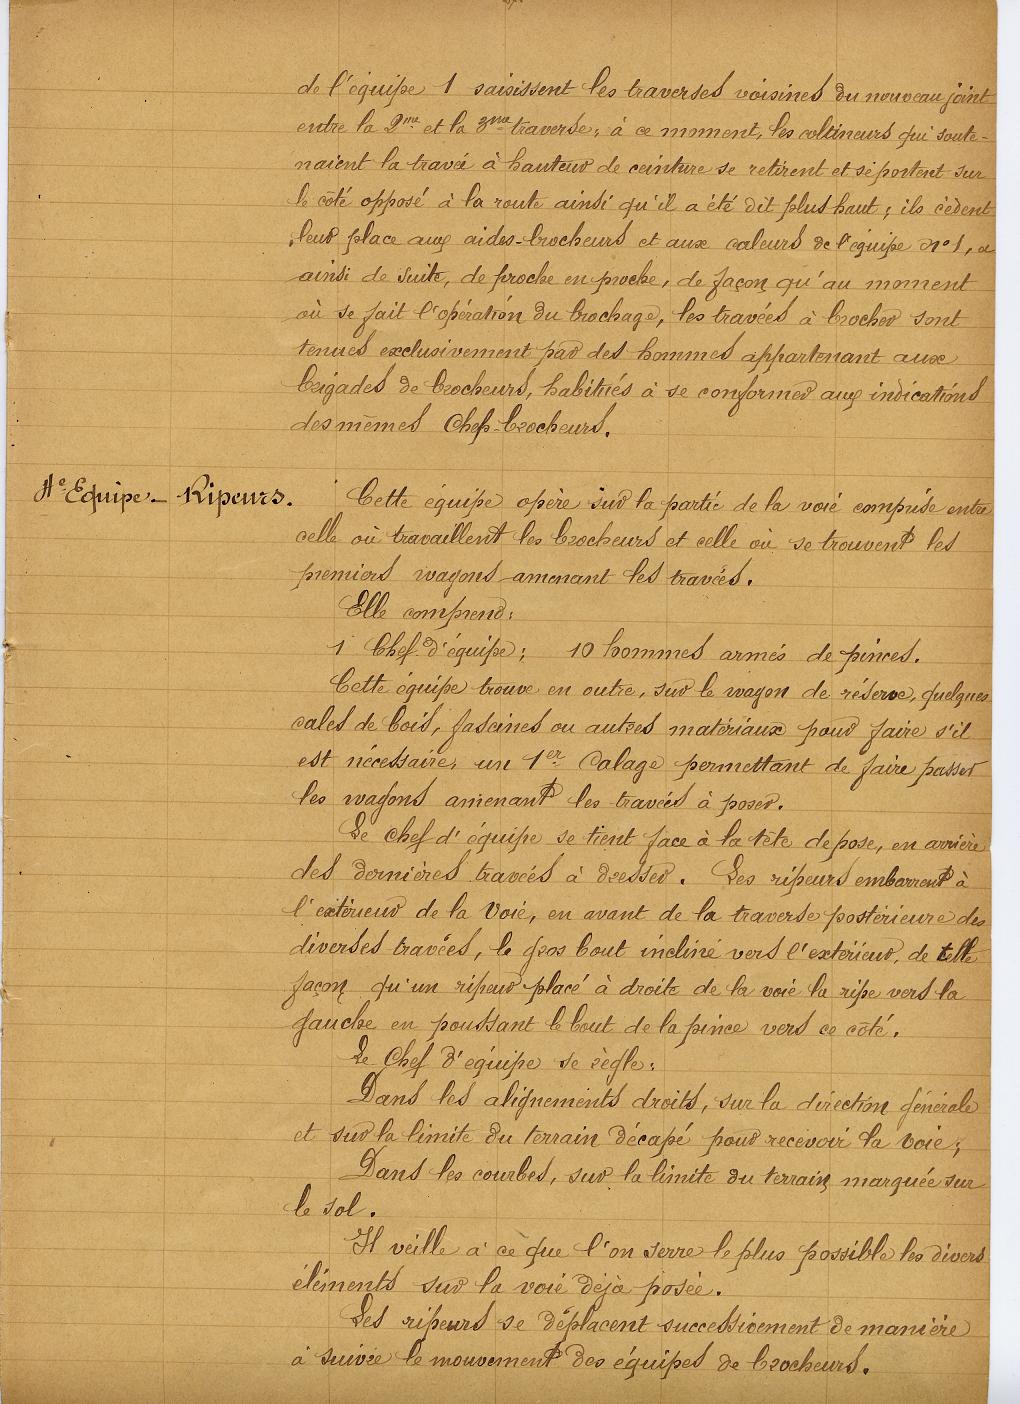 de l'équipe 1 saisissent les traverses voisines du nouveau joint
entre la 2me et la 3me traverse; à ce moment, les coltineurs qui soute-
naient la travée à hauteur de ceinture se retirent et se portent sur
le côté opposé à la route ainsi qu'il a été dit plus haut; ils cèdent
leur place aux aides-brocheurs et aux caleurs de l'équipe n° 1, et
ainsi de suite, de proche en proche, de façon qu'au moment
où se fait l'opération du brochage, les travées à brocher sont
tenues exclusivement par des hommes appartenant aux
brigades de brocheurs, habitués à se conformer aux indications
des mêmes Chefs-brocheurs.
4e Equipe - Ripeurs.
Cette équipe opère sur la partie de la voie comprise entre
celle où travaillent les brocheurs et celle où se trouvent les
premiers wagons amenant les travées.
Elle comprend:
1 Chef d'équipe; 10 hommes armés de pinces.
Cette équipe trouve en outre, sur le wagon de réserve, quelques
cales de bois, fascines ou autres matériaux pour faire s'il
est nécessaire, un 1er Calage permettant de faire passer
les wagons amenant les travées à poser.
Le chef d'équipe se tient face à la tête de pose, en arrière
des dernières travées à dresser. Les ripeurs embarrent à
l'extérieur de la Voie, en avant de la traverse postérieure des
diverses travées, le gros bout incliné vers l'extérieur, de telle
façon qu'un ripeur placé à droite de la voie la ripe vers la
gauche en poussant le bout de la pince vers ce côté.
Le Chef d'équipe se règle:
Dans les alignements droits, sur la direction générale
et sur la limite du terrain décapé pour recevoir la voie;
Dans les courbes, sur la limite du terrain marquée sur
le sol.
Il veille à ce que l'on serre le plus possible les divers
éléments sur la voie déjà posée.
Les ripeurs se déplacent successivement de manière
à suivre le mouvement des équipes de brocheurs.